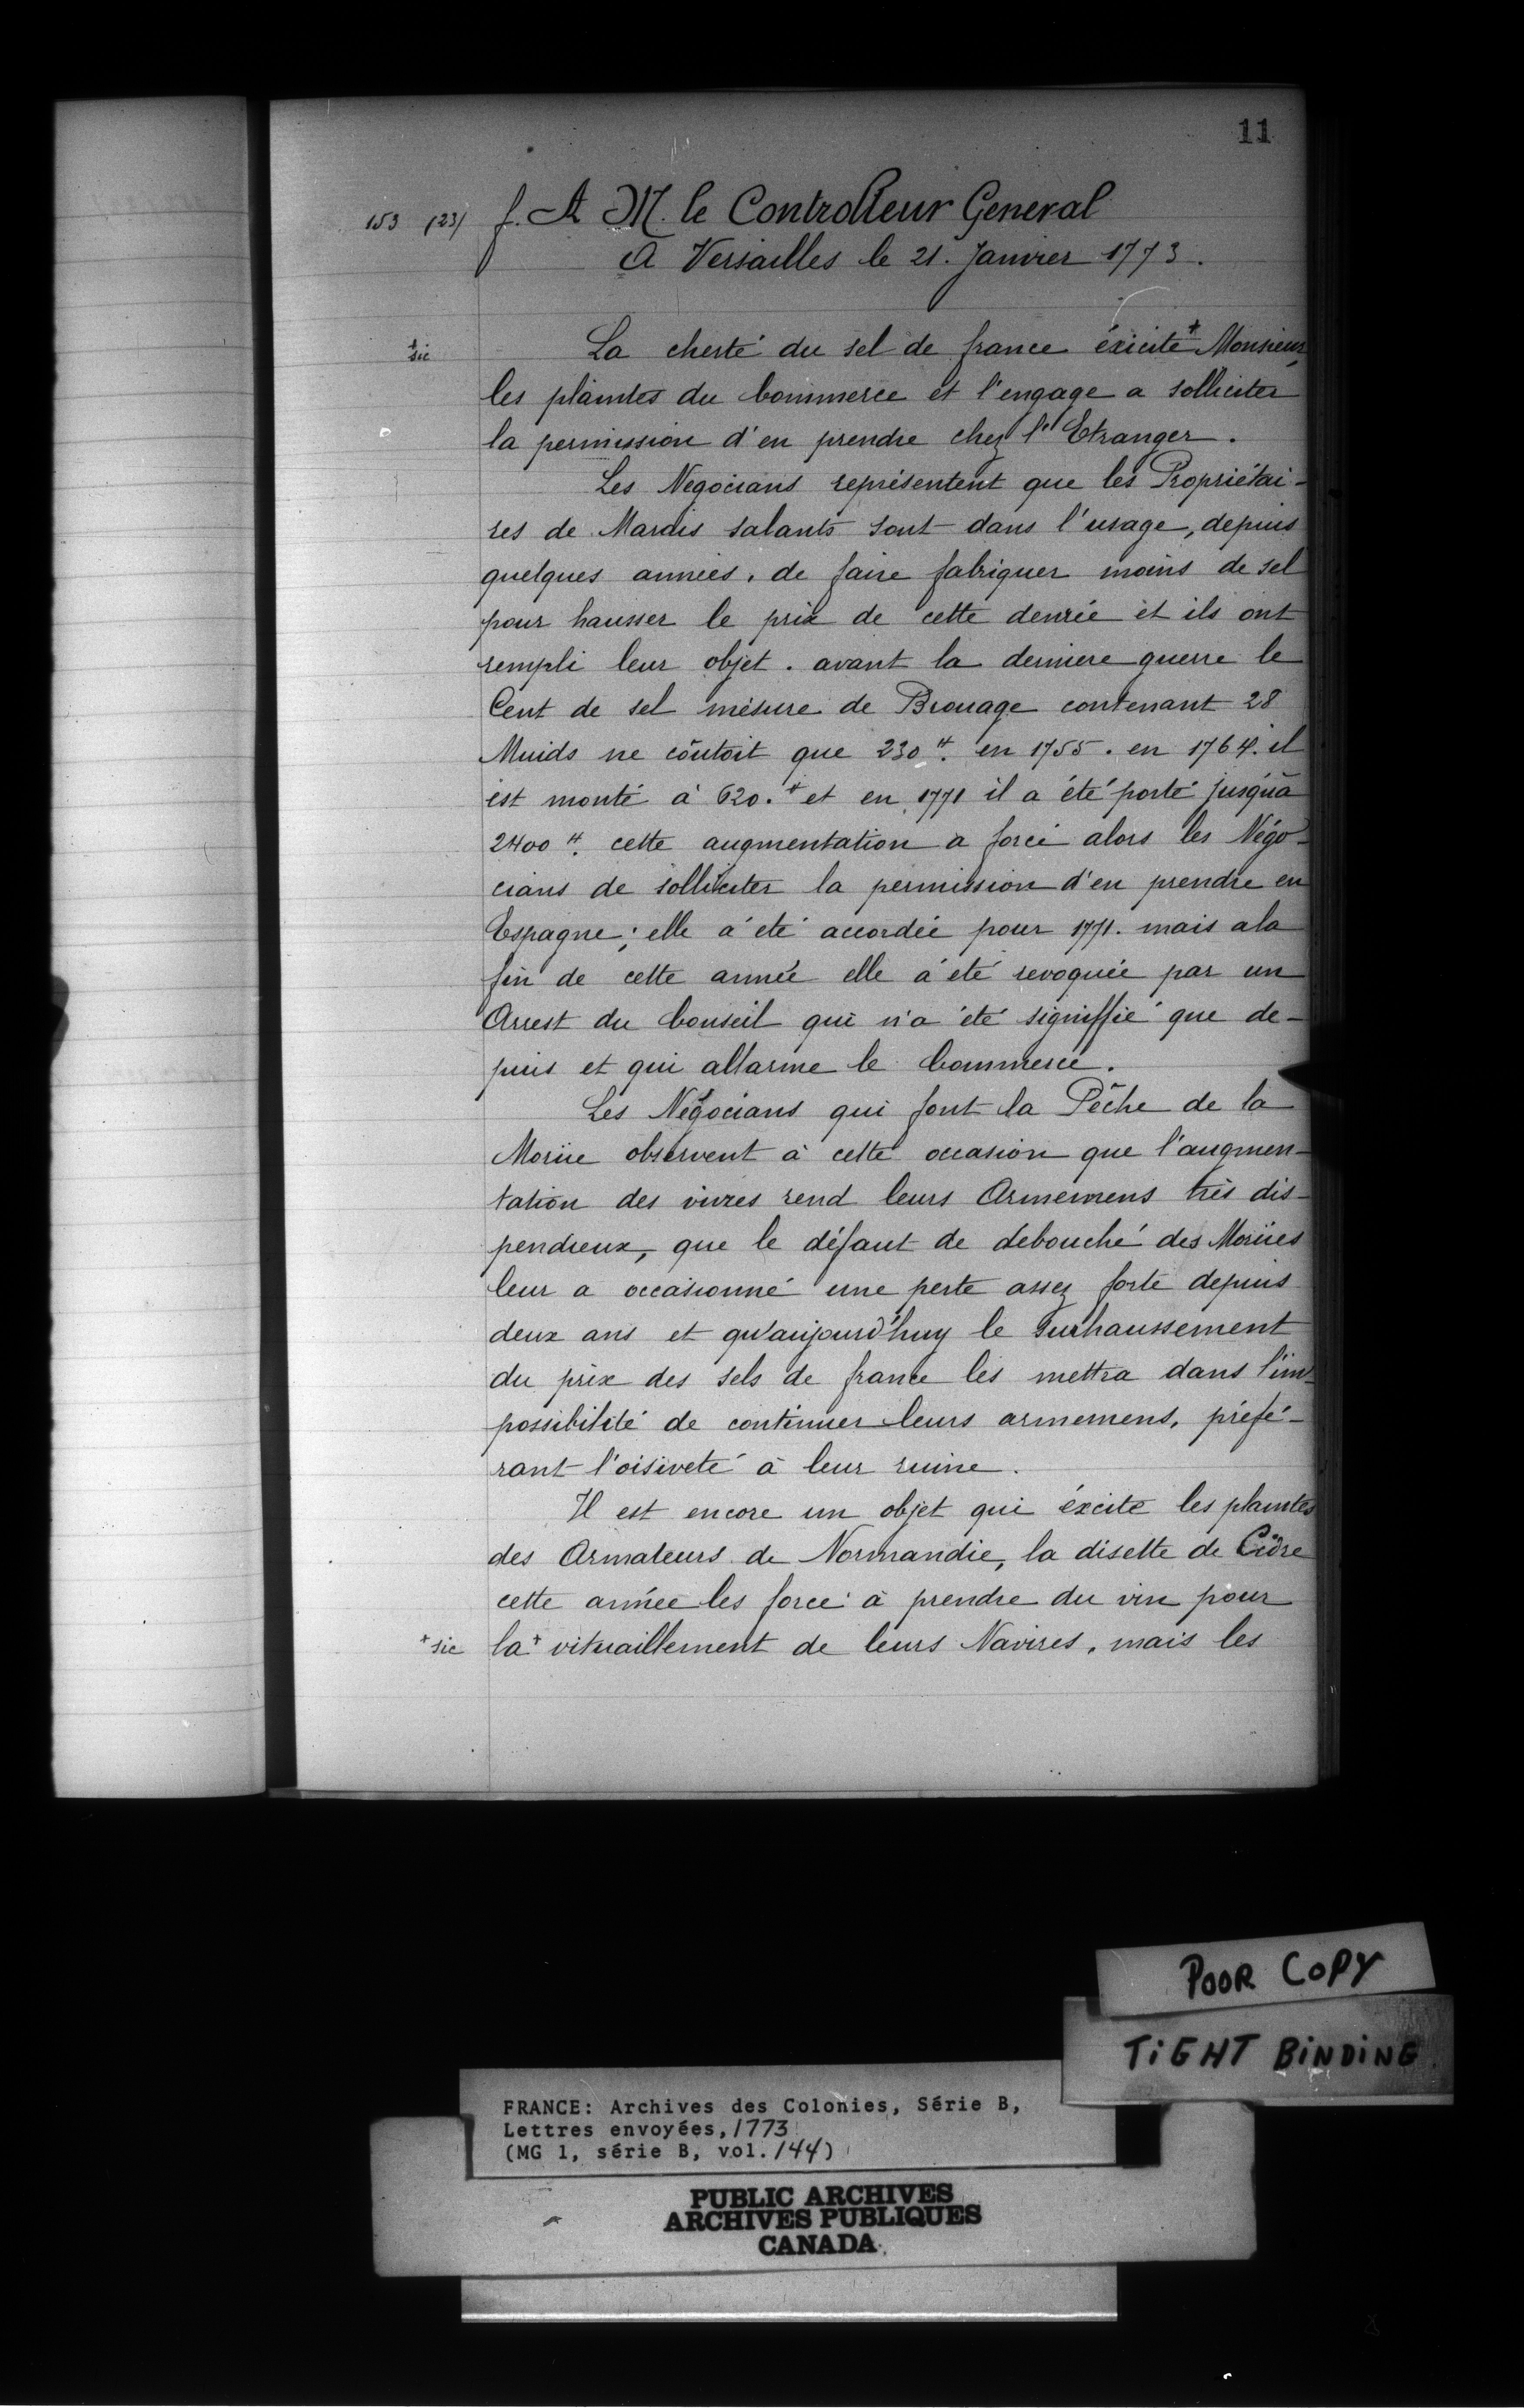 11
153 (23) f. A M. le Controlleur General
A Versailles le 21. Janvier 1773.
+ sic La cherté du sel de france éxicite+ Monsieur,
les plaintes du Commerce et l'engage a solliciter
la permission d'en prendre chez l'Etranger.
Les Negocians représentent que les Propriétai-
res de Marais salants sont dans l'usage, depuis
quelques années, de faire fabriquer moins de sel
pour hausser le prix de cette denrée et ils ont
rempli leur objet. avant la derniere guerre le
Cent de sel mésure de Brouage contenant 28
Muids ne coûtoit que 230 ₶. en 1755. en 1764. il
est monté à 620. ₶ et en 1771 il a été porté jusqu'à
2400 ₶. cette augmentation a forcé alors les Négo-
cians de solliciter la permission d'en prendre en
Espagne; elle a été accordée pour 1771. mais a la
fin de cette année elle a été revoquée par un
Arrest du Conseil qui n'a été signiffié que de-
puis et qui allarme le Commerce.
Les Négocians qui font la Pêche de la
Morüe observent à cette occasion que l'augmen-
tation des vivres rend leurs Armemens très dis-
pendieux, que le défaut de debouché des Morües
leur a occasionné une perte assez forte depuis
deux ans et qu'aujourd'huy le surhaussement
du prix des sels de france les mettra dans l'im-
possibilité de continuer leurs armemens, préfé-
rant l'oisiveté à leur ruine.
Il est encore un objet qui éxcite les plaintes
des Armateurs de Normandie, la disette de Cidre
cette année les force à prendre du vin pour
+ sic la+ vituaillement de leurs Navires, mais les
POOR COPY
TIGHT BINDING
FRANCE: Archives des Colonies, Série B,
Lettres envoyées, 1773
(MG 1, série B, vol. 144)
PUBLIC ARCHIVES
ARCHIVES PUBLIQUES
CANADA